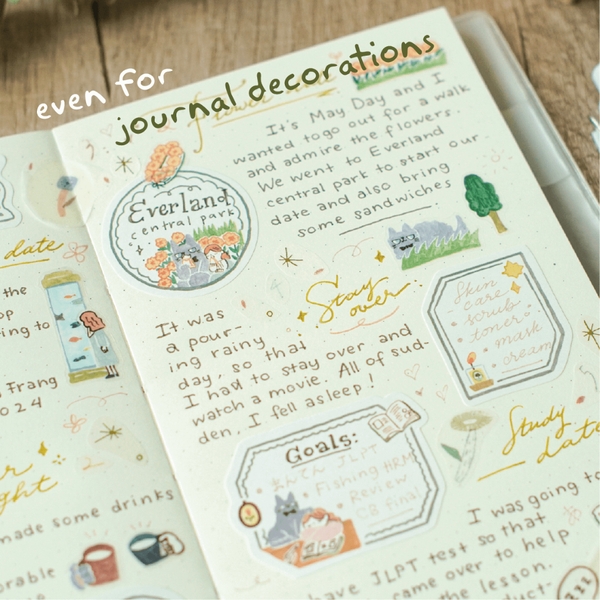 even for
journal decorations
flower
It's May Day and I
wanted to go out for a walk
and admire the flowers.
We went to Everland
central park to start our
date and also bring
some sandwiches
Everland
central park
Stay
over
It was
a pour-
ing rainy
day, so that
I had to stay over and
watch a movie. All of sud-
den, I fell asleep!
Skin
care
scrub
toner
mask
cream
Goals:
JLPT
Fishing ARM
Review
CB final
Study
date
I was going to
have JLPT test so that
came over to help
the lesson.
date
the
op
ing to
Frang
2024
ght
made some drinks
orable